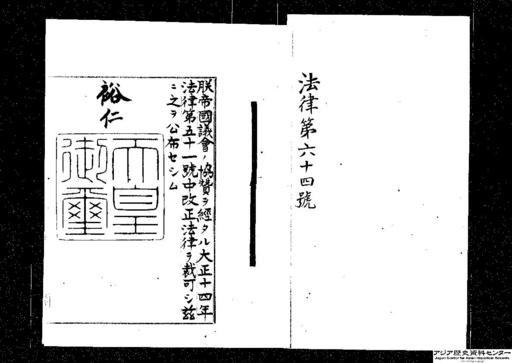 法律第六十四號
朕帝國議會ノ協贊ヲ經タル大正十四年
法律第五十一號中改正法律ヲ裁可シ玆
ニ之ヲ公布セシム
裕仁
天皇
御璽
アジア歴史資料センター
Japan Center for Asian Historical Records